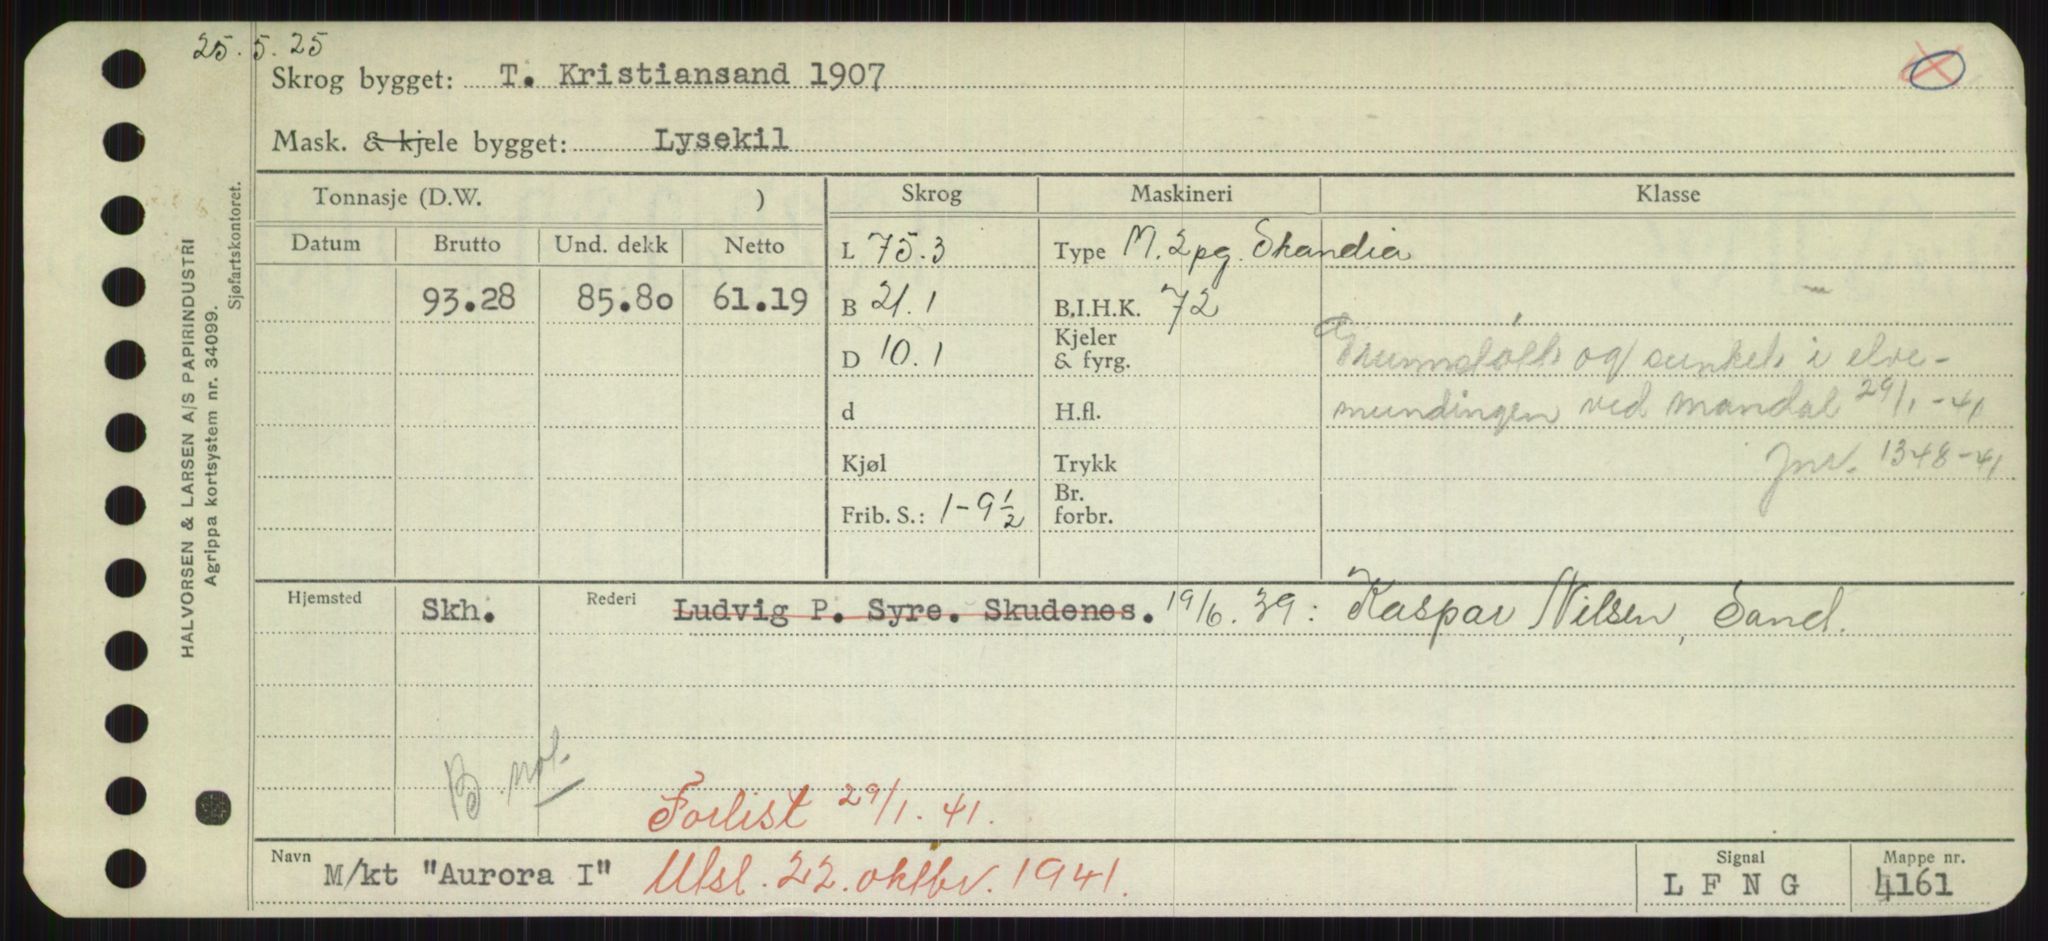 25.5.25
Skrog bygget: T. Kristiansand 1907
Mask. & kjele bygget: Lysekil
Tonnasje (D.W. ) Skrog Maskineri Klasse
Datum Brutto Und. dekk Netto L 75.3 Type M. 2pg. Skandia
93.28 85.80 61.19 B 21.1 B.I.H.K. 72
D 10.1 Kjeler & fyrg. Grunnstøtt og sunket i elve-
d H.fl. mundingen ved Mandal 29/1-41
Kjøl Trykk Jnr. 1348-41
Frib. S.: 1-9½ Br. forbr.
Hjemsted Skh. Rederi Ludvig P. Syre. Skudenes. 19/6.39: Kaspar Nilsen, Sand.
B.
Forlist 29/1.41.
Navn M/kt "Aurora I" Utsl. 22. oktbr. 1941. Signal L F N G Mappe nr. 4161
HALVORSEN & LARSEN A/S PAPIRINDUSTRI
Agrippa kortsystem nr. 34099.
Sjøfartskontoret.